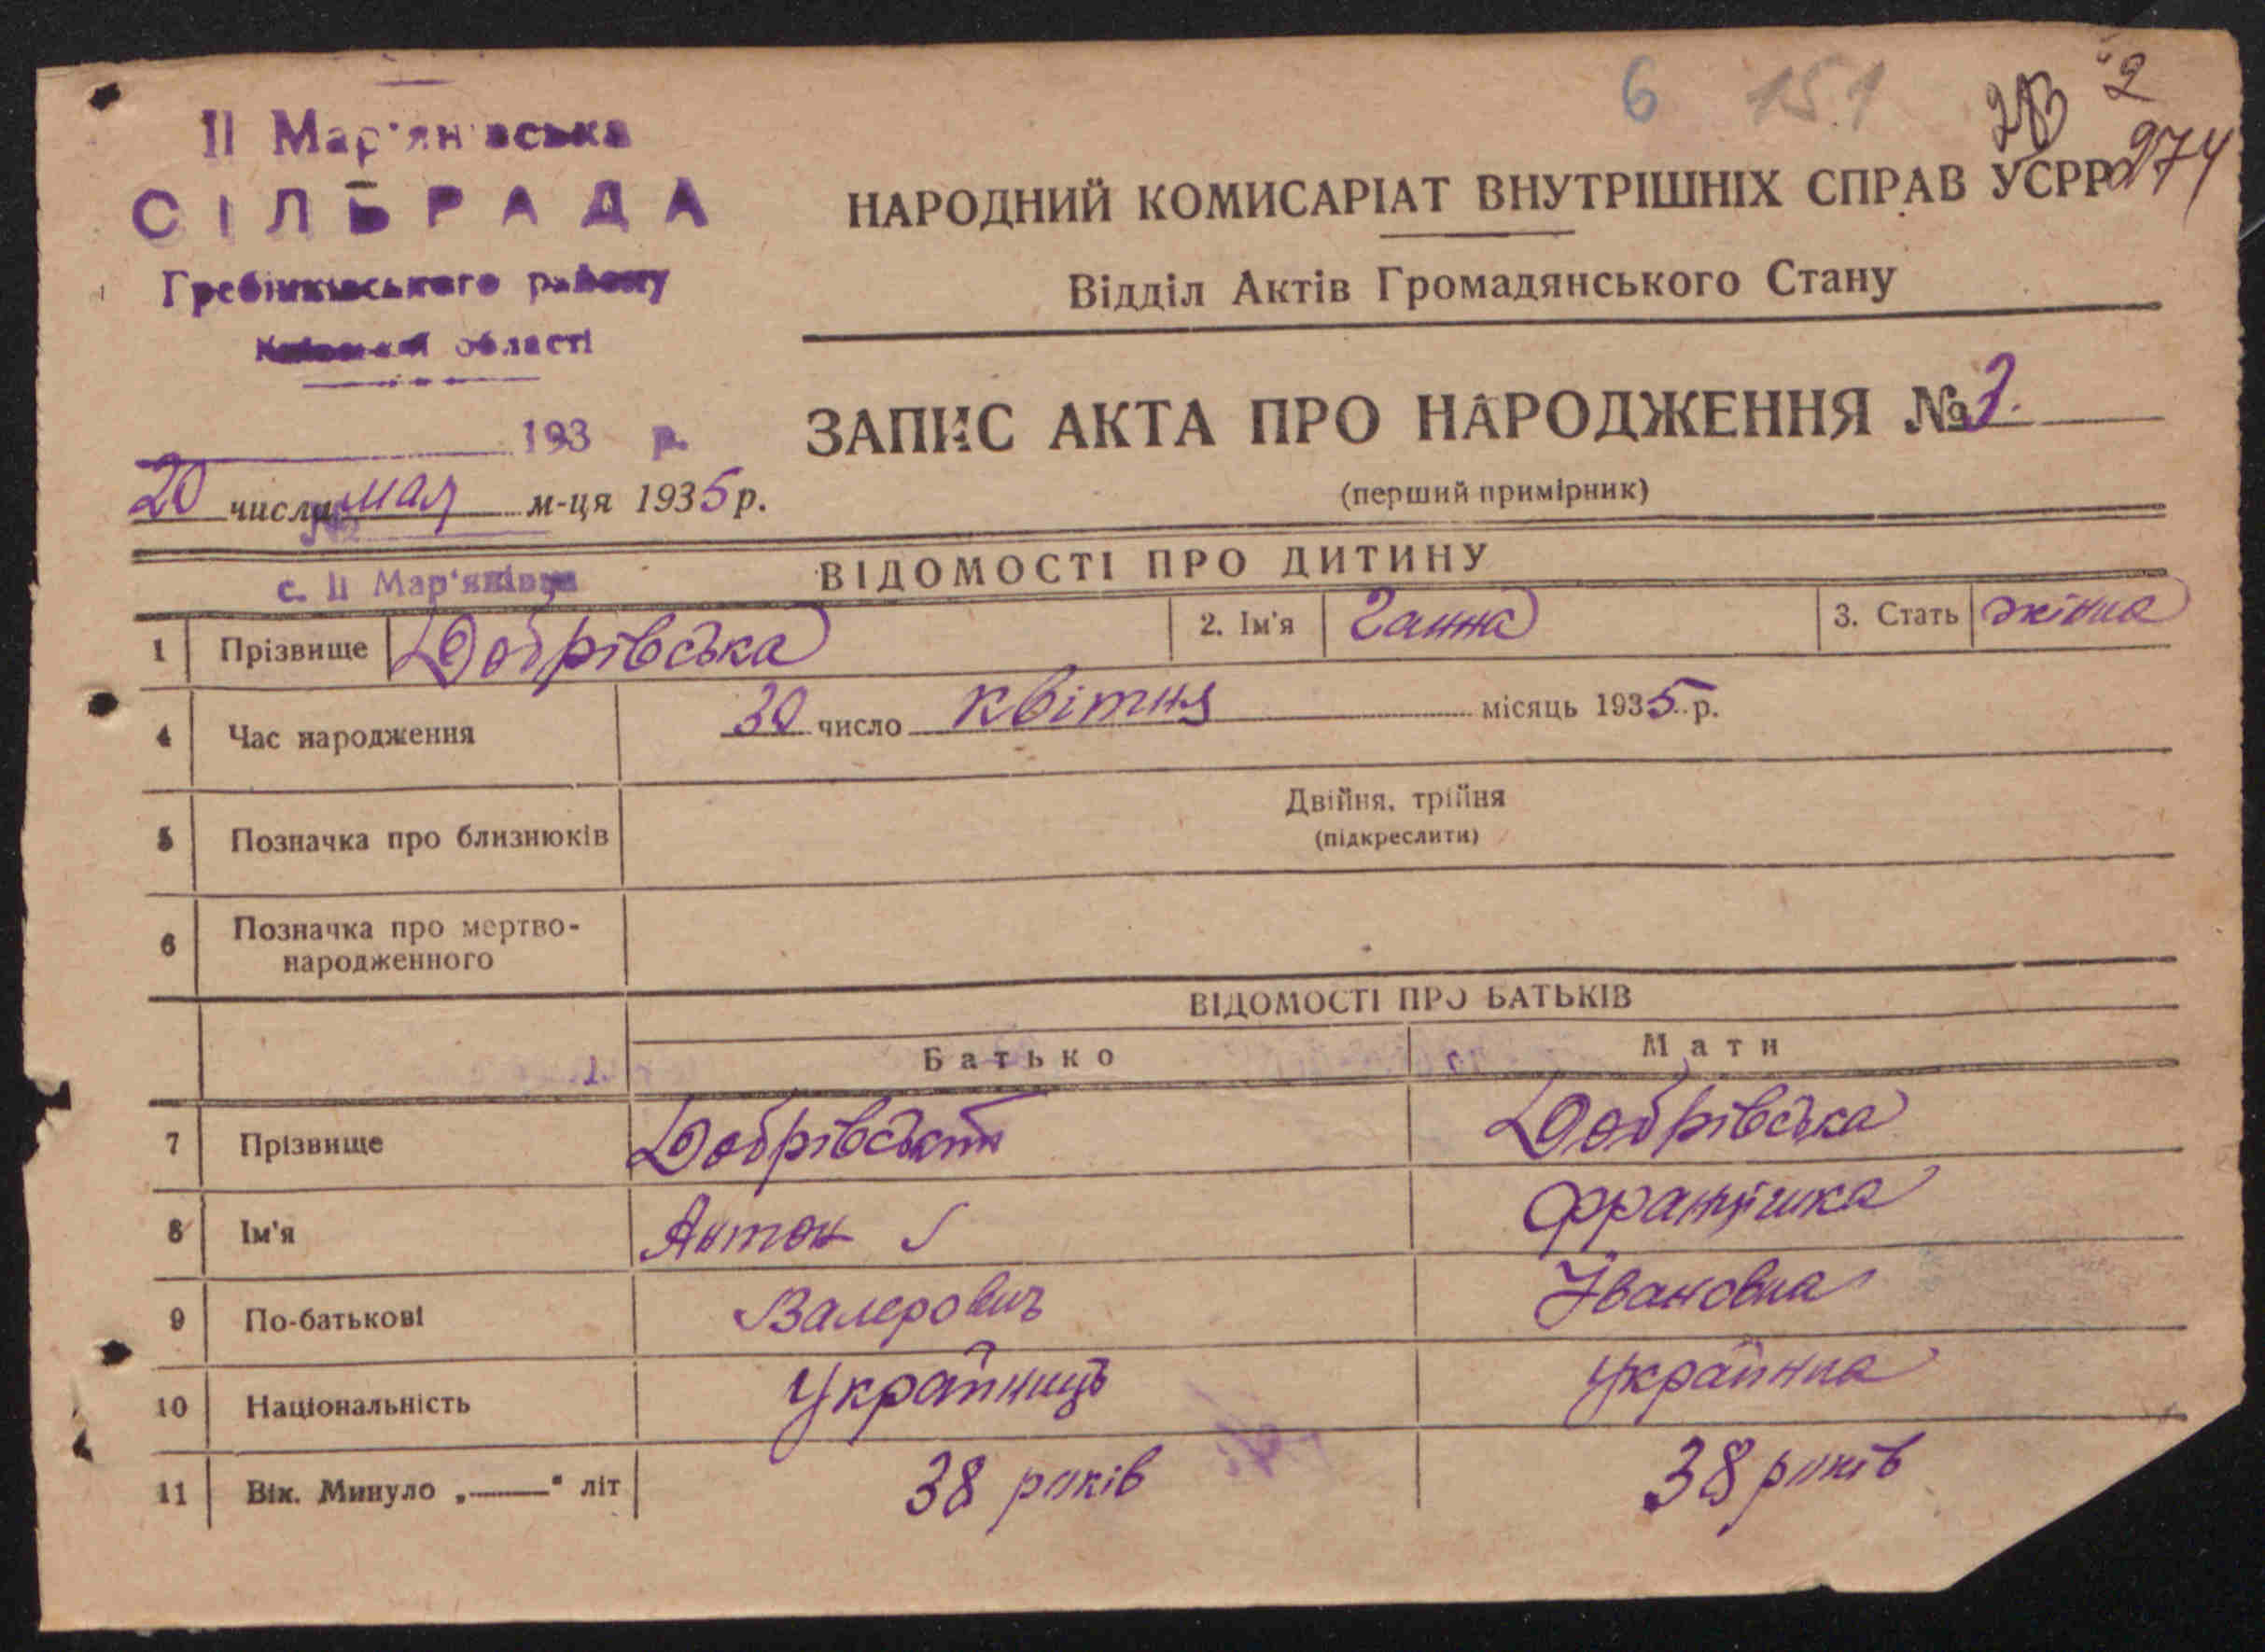 6 151 2
274
ІІ Мар'янівська
СІЛЬРАДА
Гребінківського району
Київської області
193 р.
НАРОДНИЙ КОМИСАРІАТ ВНУТРІШНІХ СПРАВ УСРР
Відділ Актів Громадянського Стану
ЗАПИС АКТА ПРО НАРОДЖЕННЯ №
(перший примірник)
20 числа мая м-ця 1935 р.
№
с. ІІ Мар'янівка
ВІДОМОСТІ ПРО ДИТИНУ
1 Прізвище Добрівська 2. Ім'я Ганна 3. Стать жіноа
4 Час народження 30 число квітня місяць 1935 р.
5 Позначка про близнюків Двійня, трійня
(підкреслити)
6 Позначка про мертво-
народженного
ВІДОМОСТІ ПРО БАТЬКІВ
Батько Мати
7 Прізвище Добрівський Добрівська
8 Ім'я Антон Францішка
9 По-батькові Валерович Івановна
10 Національність Україниць Українка
11 Вік. Минуло „——" літ 38 років 38 років